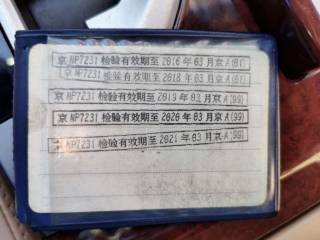 京NP7231 检验有效期至2016年03月京A(01)
京NP7231 检验有效期至2018年03月京A(01)
京NP7231 检验有效期至2019年03月京A(99)
京NP7231 检验有效期至2020年03月京A(99)
NP7231 检验有效期至2021年03月京A(99)